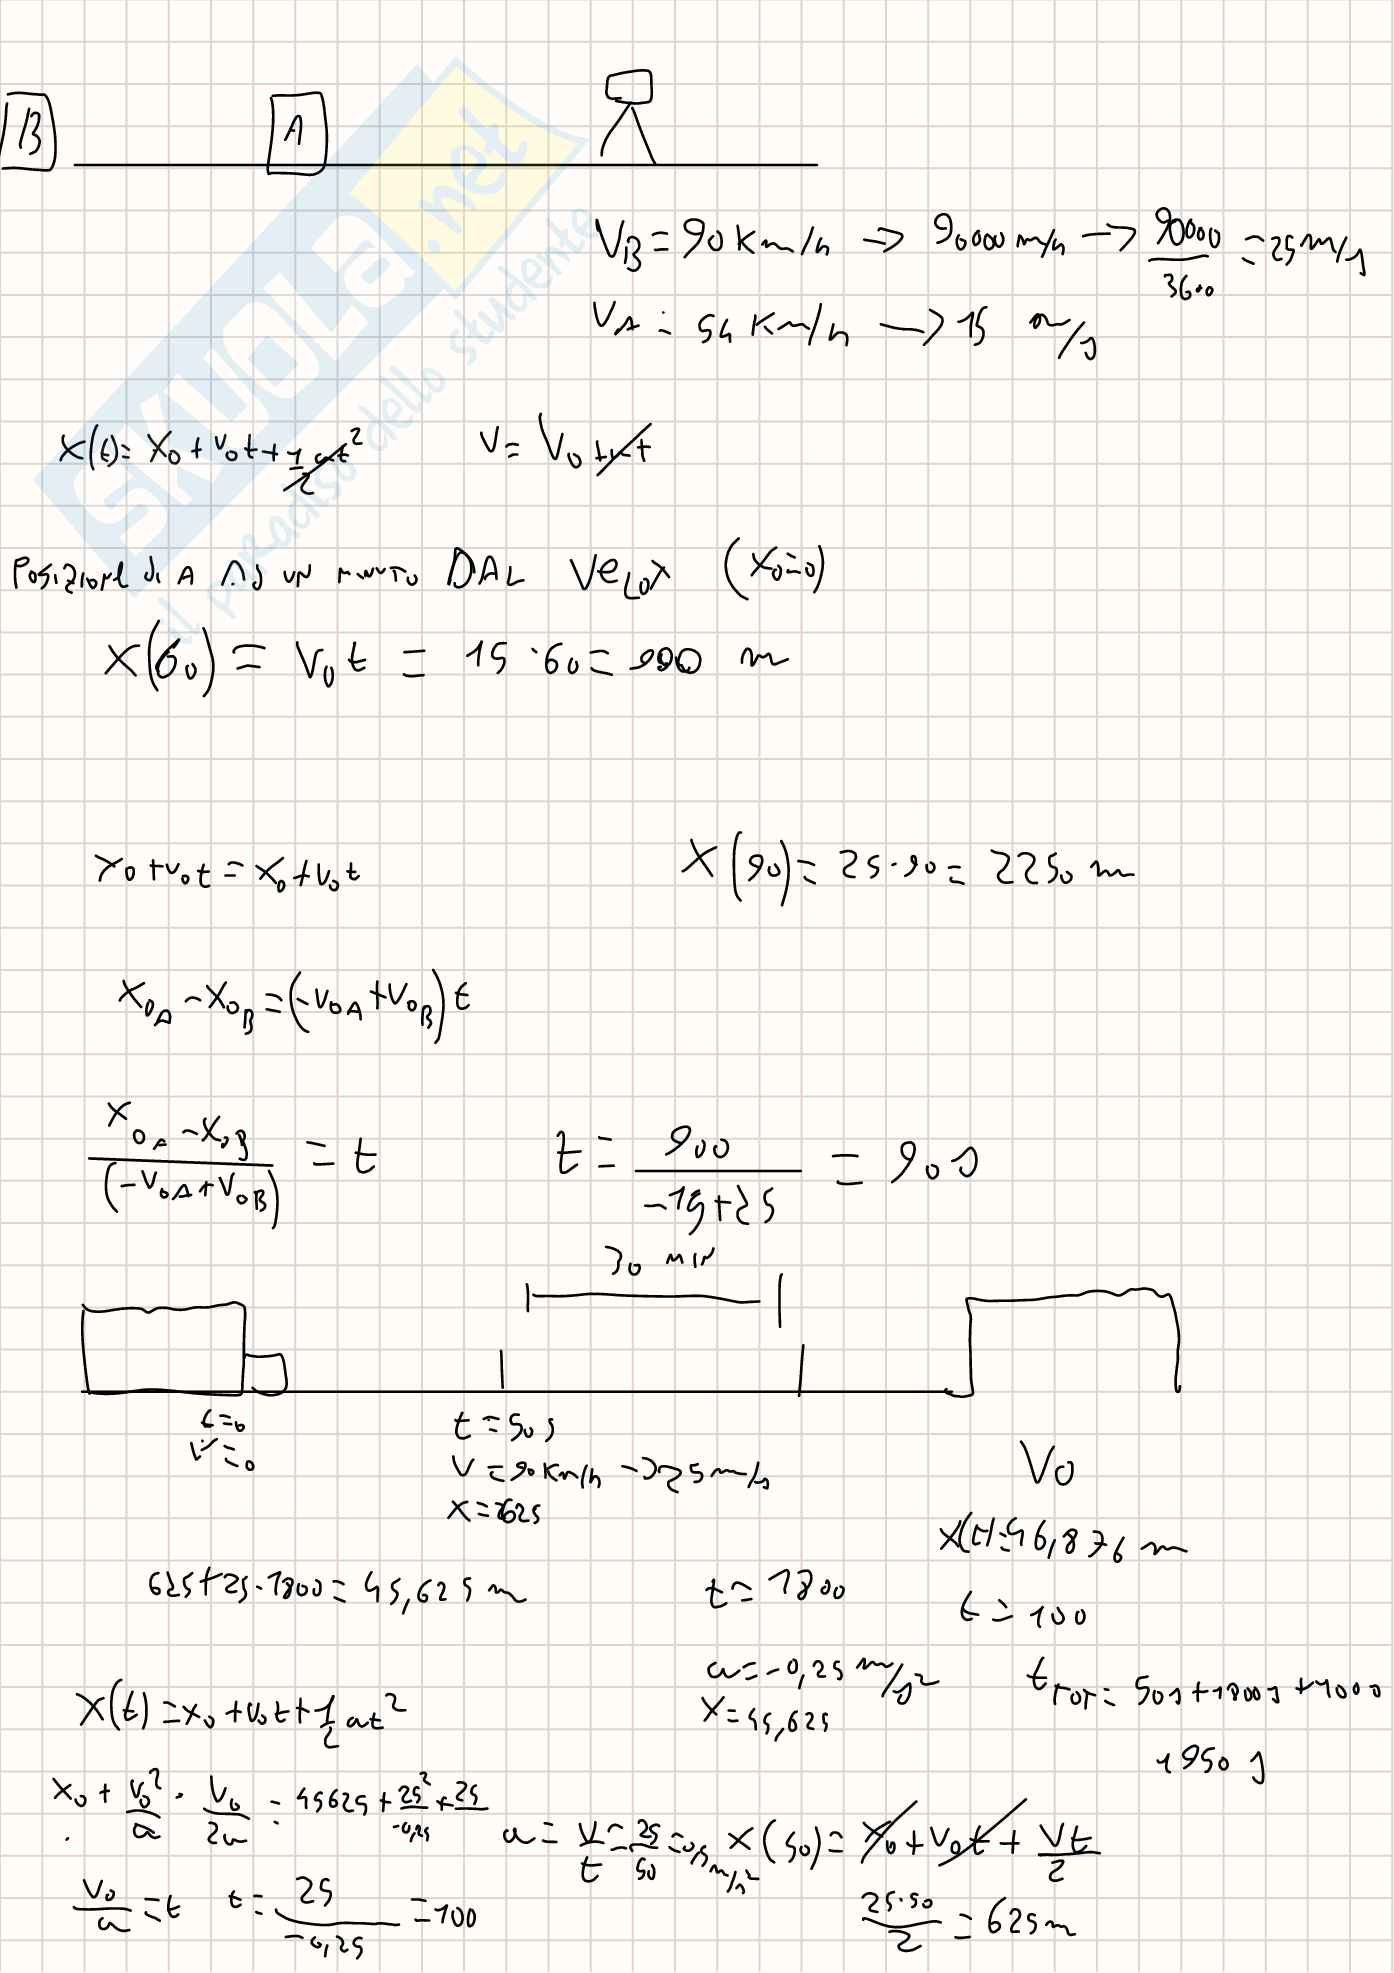 B
A
V_B = 90 Km/h → 90000 m/h → 90000/3600 = 25 m/s
V_A = 54 Km/h → 15 m/s
X(t) = X_0 + V_0 t + 1/2 at^2
V = V_0 + at
Posizione di A AD UN MINUTO DAL VeLOX (X_0=0)
X(60) = V_0 t = 15 · 60 = 900 m
X_0 + V_0 t = X_0 + V_0 t
X(90) = 25 · 90 = 2250 m
X_0A - X_0B = (-V_0A + V_0B) t
X_0A - X_0B / (-V_0A + V_0B) = t
t = 900 / -15+25 = 90 s
30 MIN
t = 0
V = 0
t = 50 s
V = 90 Km/h → 25 m/s
X = 625
V_0
X(t) = 46,876 m
625 + 25 · 1800 = 45,625 m
t = 1800
t = 100
a = -0,25 m/s^2
X = 45,625
t_TOT = 50 s + 1800 s + 100 s
1950 s
X(t) = X_0 + V_0 t + 1/2 at^2
X_0 + V_0^2/a · V_0/2a = 45625 + 25^2/-0,25 + 25
a = V/t = 25/50 = 0,5 m/s^2
X(50) = X_0 + V_0 t + Vt/2
V_0/a = t
t = 25/-0,25 = 100
25·50/2 = 625 m
SKUOLA.net
il paradiso dello studente